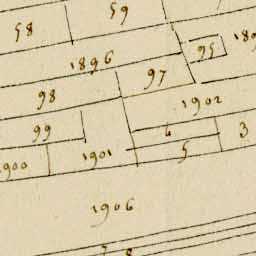 59
58
95
1896
97
98
1902
99
6
3
1901
5
1906